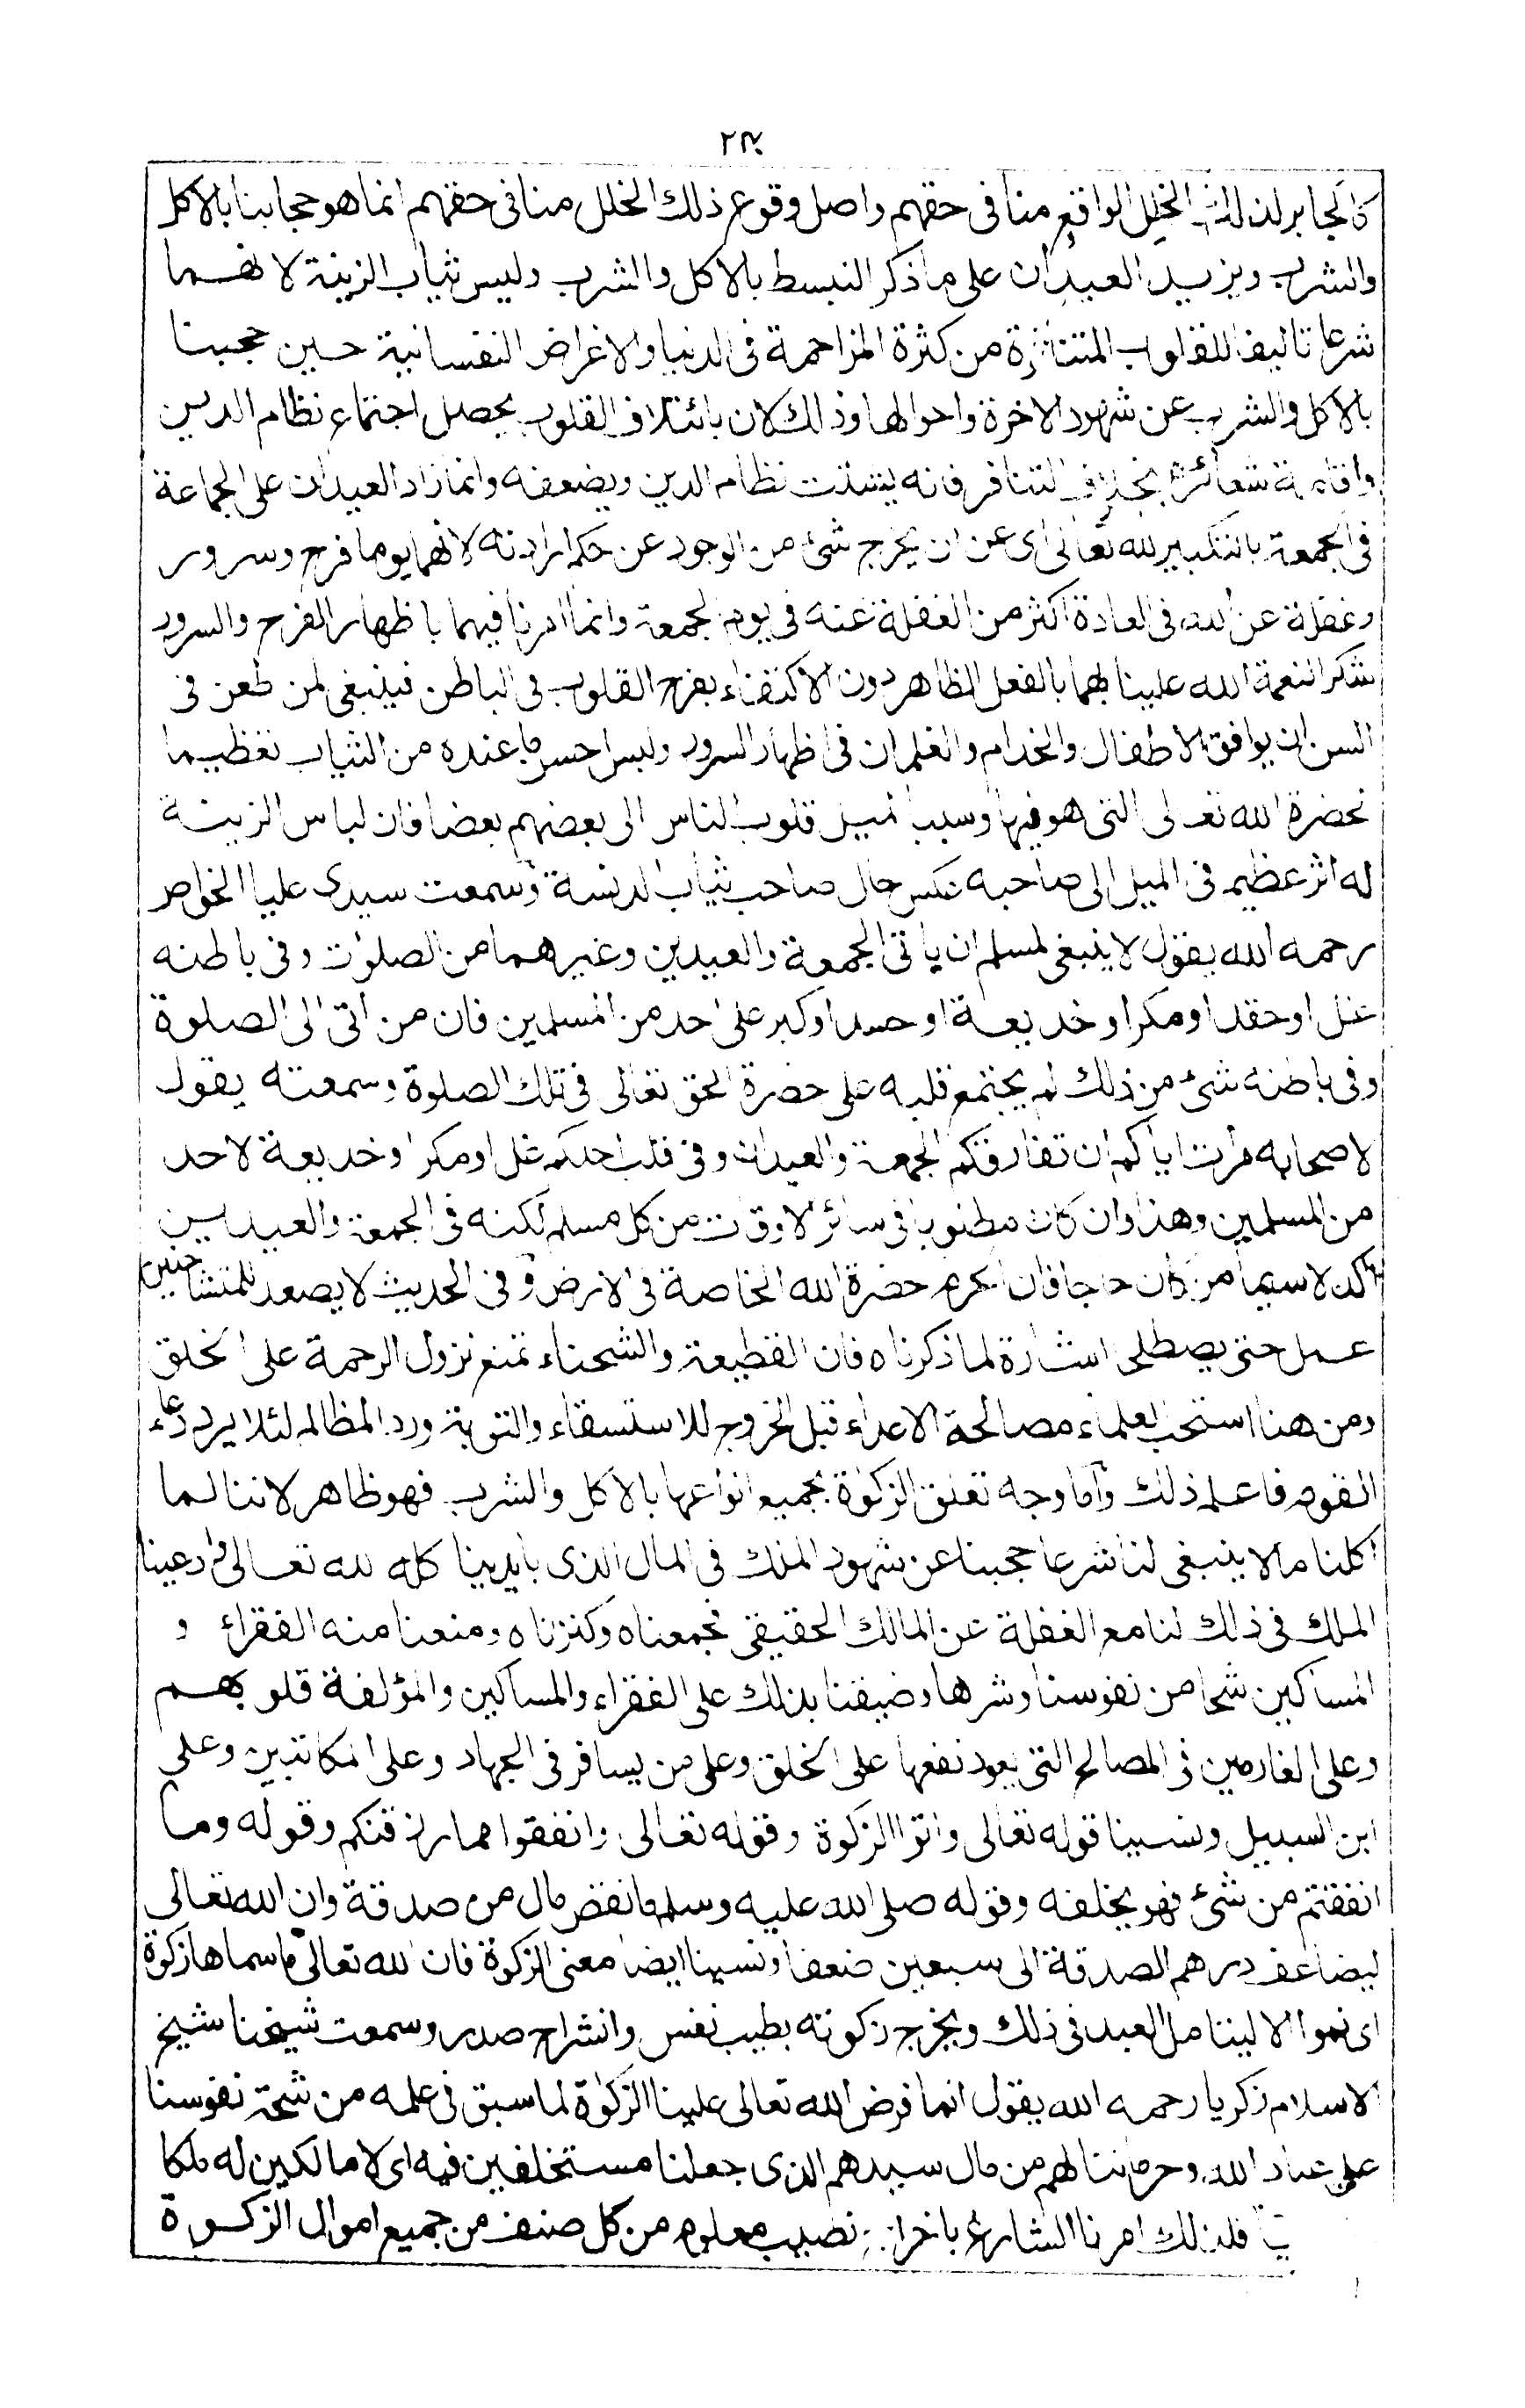 كالجابر لذلك الخلل الواقع منا فى حقهم واصل وقوع ذلك الخلل منا فى حقهم انما هو حجابنا بالاكل
والشرب ويزيد العيدان على ما ذكر التبسط بالاكل والشرب ولبس ثياب الزينة لانهما
شرعا تاليفا للقلوب المتنافرة من كثرة المزاحمة فى الدنيا والاغراض النفسانية حين حجبنا
بالاكل والشرب عن شهود الاخرة واحوالها وذلك لان بائتلاف القلوب يحصل اجتماع نظام الدين
واقامة شعائره بخلاف التنافر فانه يشتت نظام الدين ويضعفه وانما زاد العيدان على الجماعة
فى الجمعة بالتكبير لله تعالى اى عن ان يخرج شئ من الوجود عن حكم ارادته لانهما يوما فرح وسرور
وغفلة عن الله فى العادة اكثر من الغفلة عنه فى يوم الجمعة وانما امرنا فيهما باظهار الفرح والسرور
شكرا لنعمة الله علينا بهما بالفعل الظاهر دون الاكتفاء بفرح القلوب فى الباطن فينبغى لمن طعن فى
السن ان يوافق الاطفال والخدام والغلمان فى اظهار السرور ولبس احسن ما عنده من الثياب تعظيما
لحضرة الله تعالى التى هو فيها وسببا لميل قلوب الناس الى بعضهم بعضا فان لباس الزينة
له اثر عظيم فى الميل الى صاحبه عكس حال صاحب ثياب الدنسة وسمعت سيدى عليا الخواص
رحمه الله يقول لا ينبغى لمسلم ان ياتى الجمعة والعيدين وغيرهما من الصلوٰت وفى باطنه
غل او حقد او مكر او خديعة او حسد او كبر على احد من المسلمين فان من اتى الى الصلوة
وفى باطنه شئ من ذلك لم يجتمع قلبه على حضرة الحق تعالى فى تلك الصلوة وسمعته يقول
لاصحابه مرات اياكم ان تفارقكم الجمعة والعيدان وفى قلب احدكم غل او مكر او خديعة لاحد
من المسلمين وهذا وان كان مطلوبا فى سائر الاوقات من كل مسلم لكنه فى الجمعة والعيدين
اكد لاسيما من كان حاجا فان الحرم حضرة الله الخاصة فى الارض وفى الحديث لا يصعد للمتشاحنين
عمل حتى يصطلحا اشارة لما ذكرناه فان القطيعة والشحناء تمنع نزول الرحمة على الخلق
ومن هنا استحب العلماء مصالحة الاعداء قبل الخروج للاستسقاء والتوبة ورد المظالم لئلا يرد دعاء
القوم فاعلم ذلك واما وجه تعلق الزكوٰة بجميع انواعها بالاكل والشرب فهو ظاهر لاننا لما
اكلنا ما لا ينبغى لنا شرعا حجبنا عن شهود الملك فى المال الذى بايدينا كله لله تعالى وادعينا
الملك فى ذلك لنا مع الغفلة عن المالك الحقيقى فجمعناه وكنزناه ومنعنا منه الفقراء و
المساكين شحا من نفوسنا وشرها وضيقنا بذلك على الفقراء والمساكين والمؤلفة قلوبهم
وعلى الغارمين فى المصالح التى يعود نفعها على الخلق وعلى من يسافر فى الجهاد وعلى المكاتبين وعلى
ابن السبيل ونسينا قوله تعالى واتوا الزكوة وقوله تعالى وانفقوا مما رزقنكم وقوله وما
انفقتم من شئ فهو يخلفه وقوله صلى الله عليه وسلم ما نقص مال من صدقة وان الله تعالى
ليضاعف درهم الصدقة الى سبعين ضعفا ونسينا ايضا معنى الزكوة فان الله تعالى ما سماها زكوة
اى نموا الا ليتامل العبد فى ذلك ويخرج زكوته بطيب نفس وانشراح صدر وسمعت شيخنا شيخ
الاسلام زكريا رحمه الله يقول انما فرض الله تعالى علينا الزكوٰة لما سبق فى علمه من شحة نفوسنا
على عباد الله وحرماننا لهم من مال سيدهم الذى جعلنا مستخلفين فيه اى لا مالكين له ملكا
فلذلك امرنا الشارع باخراج نصيب معلوم من كل صنف من جميع اموال الزكوة